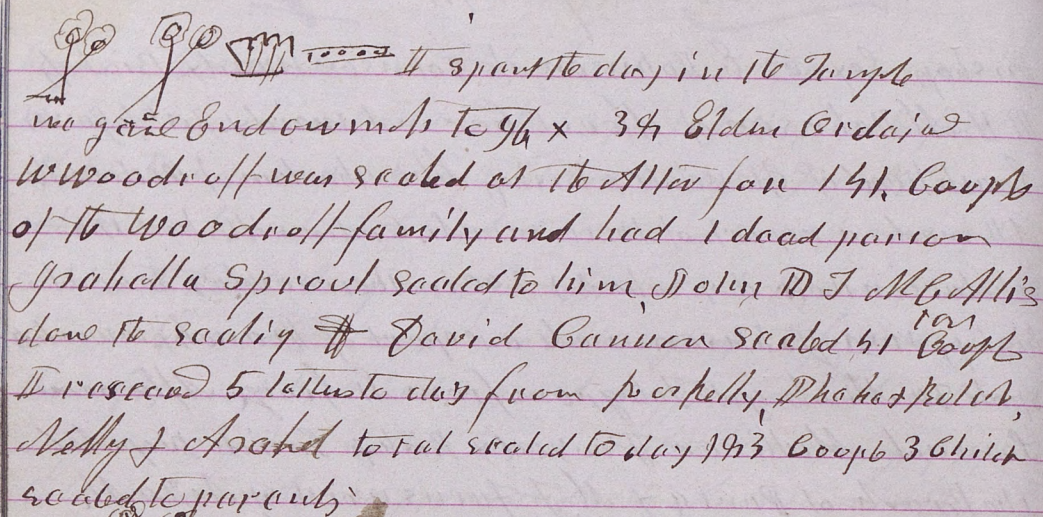 I spent the day in the Temple
we gave Endowmts to 96 x 34 Elder Ordaind
W Woodruff was sealed at the Altar for 141, Coupls
of the Woodruff family and had 1 dead person
Isabella Sproul sealed to him, John D T McAllis
done the sealig David Cannon sealed 41 for Coupl
I receved 5 letters to day from Phebe & Bulah,
Nelly & Asahel total sealed to day 183 Coupls 3 Child
sealed to parents